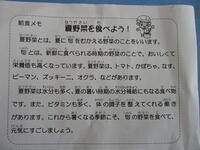 給食メモ
夏野菜を食べよう!
夏野菜とは、夏に旬をむかえる野菜のことをいいます。
旬とは、新鮮に食べられる時期の野菜のことで、おいしくて
栄養価も高くなっています。夏野菜は、トマト、かぼちゃ、なす、
ピーマン、ズッキーニ、オクラ、などがあります。
夏野菜は水分も多く、暑い時期の水分補給にもなる食べ物
です。また、ビタミンも多く、体の調子を整えてくれる働き
があります。これから暑くなる季節こそ、旬の野菜を食べて、
元気にすごしましょう。